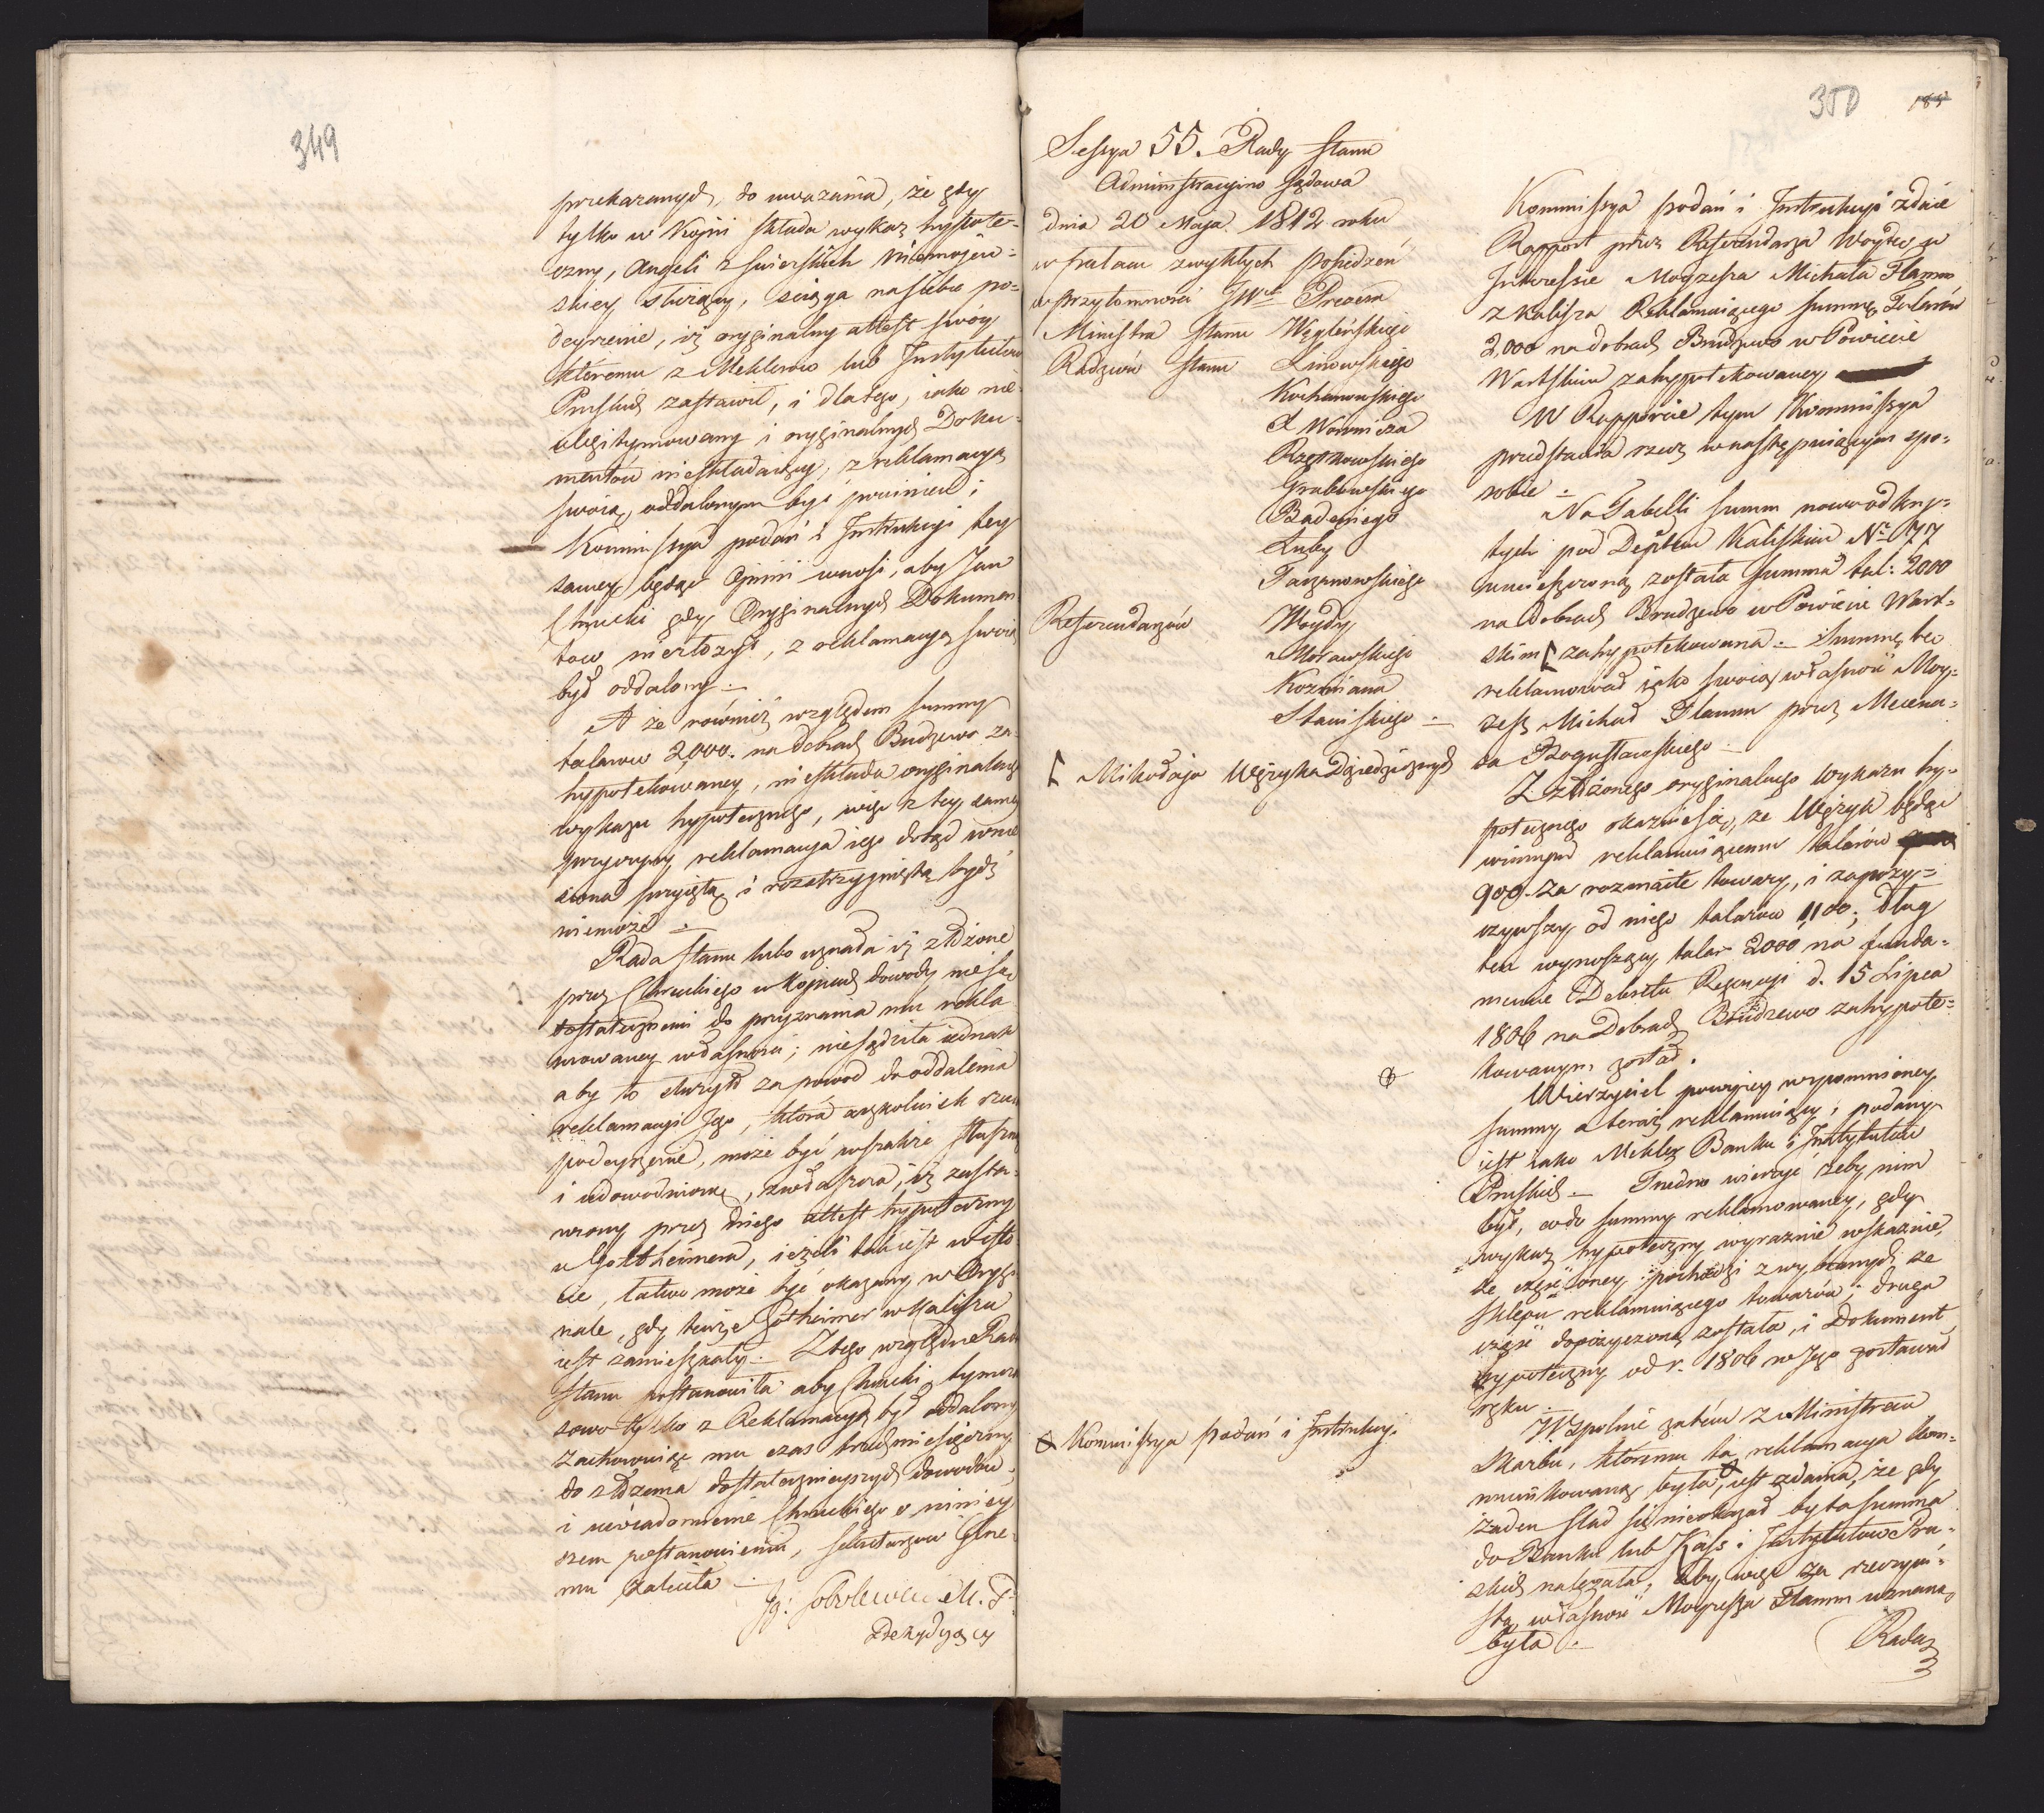 349
przekazanych, do uważania, że gdy
tylko w Kopii składa wykaz hypote-
czny, Angeli z
skiey służący, ściąga na siebie po-
deyrzenie, iż oryginalny attest swóy
któremu z Meklerów lub Instytutów
Pruskich zastawił, i dlatego, iako nie
ulegitymowany i oryginalnych Doku-
mentów nieskładaiący, z reklamacyą
swoią oddalonym być powinien;
Kommissya podań i Instrukcyi tey
samey będąc Opinii wnosi, aby Jan
Chrucki gdy Oryginalnych Dokumen
tow niezłożył, z reklamacyą swoią
był oddalony.
A że również względem summy
talarow 2000. na dobrach Budzewo za-
hypotekowaney, nieskłada oryginalnego
wykazu hypotecznego, więc z tey samey
przyczyny reklamacya iego dotąd wnie
siona przyiętą i rozstrzygniętą bydź
niemoże.
Rada Stanu lubo uznała iż złożone
przez Chruckiego w Kopiach dowody nie są
dostatecznemi do przyznania mu rekla
mowaney własności; nie sądziła iednak
aby to służyło za powod do oddalenia
reklamacyi Jego, która aczkolwiek rzuca
podeyrzenie, może być wszakże słuszną
i udowodnioną, zwłaszcza, iż zasta-
wiony przez niego attest hypoteczny
u Gottheimera, ieżeli tak iest w isto-
cie, łatwo może być okazany w Orygi-
nale, gdy tenże Gotheimer w Kaliszu
iest zamieszkały. Z tego względu Rada
Stanu postanowiła aby Chrucki tymcza
sowo tylko z Reklamacyą był oddalony
zachowuiąc mu czas trzech miesięczny
do złożenia dostatecznieyszych dowodów,
i uwiadomienie Chruckiego o niniey
szem postanowieniu, Sekretarzowi Gene-
mu zaleciła.
Jg: Sobolewski M. P.
Prezyduiący
350 185
Sessya 55. Rady Stanu
Administracyino Sądowa
dnia 20 Maja 1812 roku
w pałacu zwykłych posiedzeń
w przytomności JWch Prezesa
Ministra Stanu Węgleńskiego
Radzców Stanu Linowskiego
Kochanowskiego
Woźnicza
Grabowskiego
Badeniego
Łuby
Tarzanowskiego
Referendarzów Woydy
Morawskiego
Kozmiana
Staniskiego
Mikołaja Wężyka Dziedzicznych
Kommissya podań i Instrukcyi
Kommissya podań i Instrukcyi zdaie
Rapport przez Referendarza Woydę w
Interessie Moyzesza Michała Flamm
z Kalisza Reklamuiącego summę Talarów
2,000 na dobrach Brudzewo w Powiecie
Wartskim zahypotekowaney
W Rapporcie tym Kommissya
przedstawia rzecz w następuiącym spo-
sobie:
Na Tabelli summ nowo odkry-
tych pod Deptem Kaliskim No 77
umieszczoną została summa tal: 2000
na Dobrach Brudzewo w Powiecie Wart-
skim zahypotekowana. Summę tę
reklamował iako swoią własność Moy-
zesz Michał Flamm przez Mecena-
sa Bogusławskiego.
Z złożonego oryginalnego wykazu hy-
potecznego okazuie się, że Wężyk będąc
winnym reklamuiącemu talarów
900. za rozmaite towary, i zapoży-
czywszy od niego talarow 1,100; dług
ten wynoszący talar. 2000 na funda-
mencie Dekretu Regencyi d. 15 Lipca
1806 na Dobrach Brudzewo zahypote-
kowanym został.
Wierzyciel powyżey wspomnioney
summy a teraz reklamuiący, podany
iest iako Mekler Banku i Instytutów
Pruskich. Trudno wierzyć żeby nim
był, co do summy reklamowaney, gdy
wykaz hypoteczny wyraznie wskazuie,
że część oney pochodzi z wybranych ze
sklepu reklamuiącego towarów; druga
część dopożyczoną została, i Dokument
hypoteczny od r. 1806 w Jego zostawał
ręku.
Wspolnie zatem z Ministrem
Skarbu, któremu ta reklamacya kom-
munikowaną była, iest zdania, że gdy
żaden ślad się nieokazał by ta summa
do Banku lub Kass i Instytutow Pru-
skich należała, aby więc za rzeczywi-
stą własność Moyzesza Flamm uznaną
była.
Rada